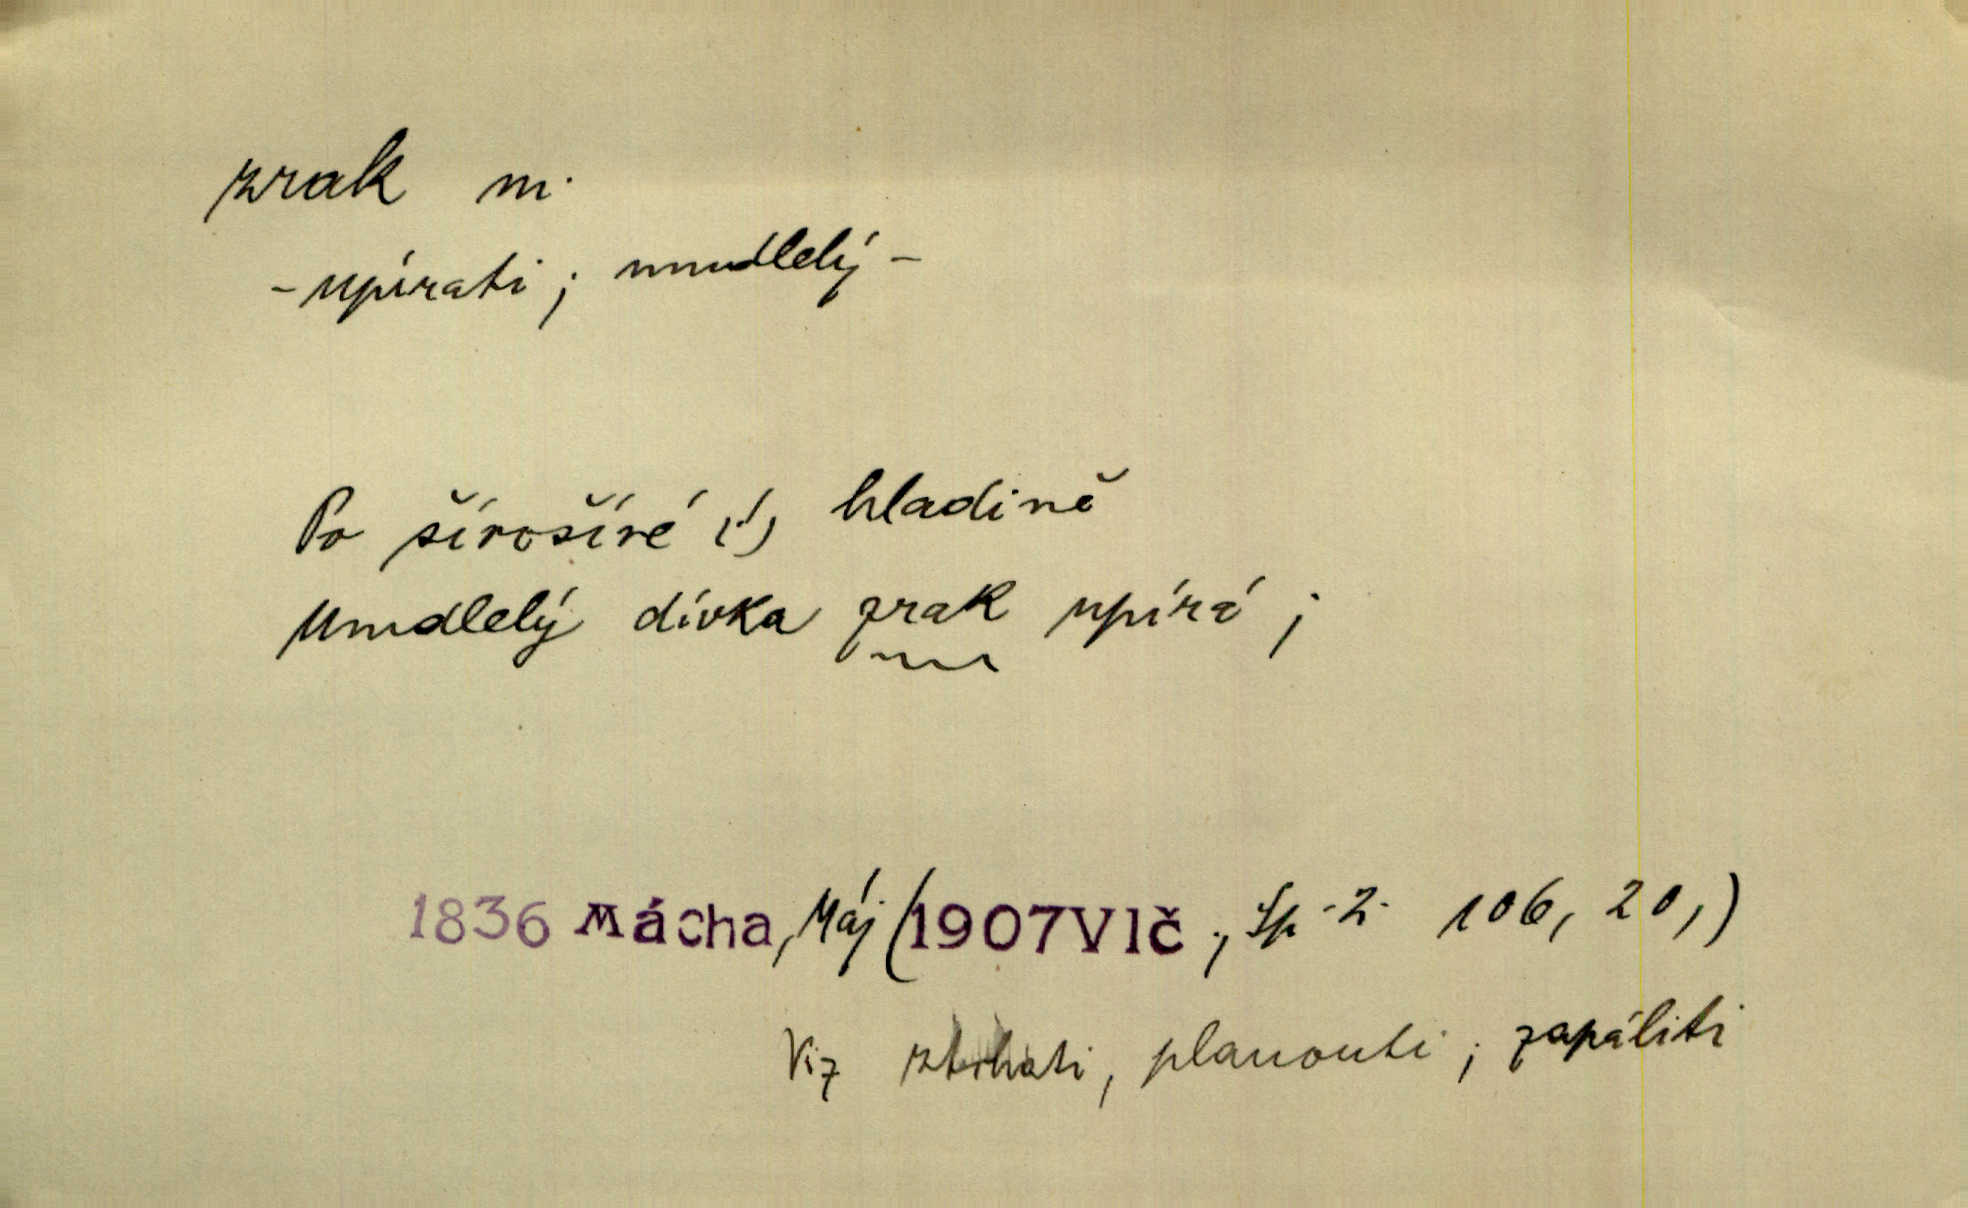 zrak m.
- upírati; umdlelý -
Po šírošíré (!) hladině
Umdlelý dívka zrak upírá;
1836 Mácha, Máj (1907 Vlč., Sp. 2. 106, 20,)
Viz planouti; zapáliti